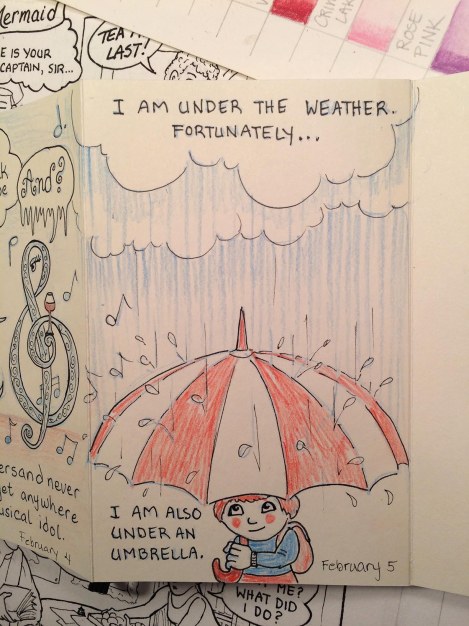 Mermaid
E IS YOUR
CAPTAIN, SIR...
TEA
LAST!
LAKE
ROSE
PINK
I AM UNDER THE WEATHER.
FORTUNATELY...
And?
be
I AM ALSO
UNDER AN
UMBRELLA.
February 5
ersand never
get anywhere
usical idol.
February 4
ME?
WHAT DID
I DO?